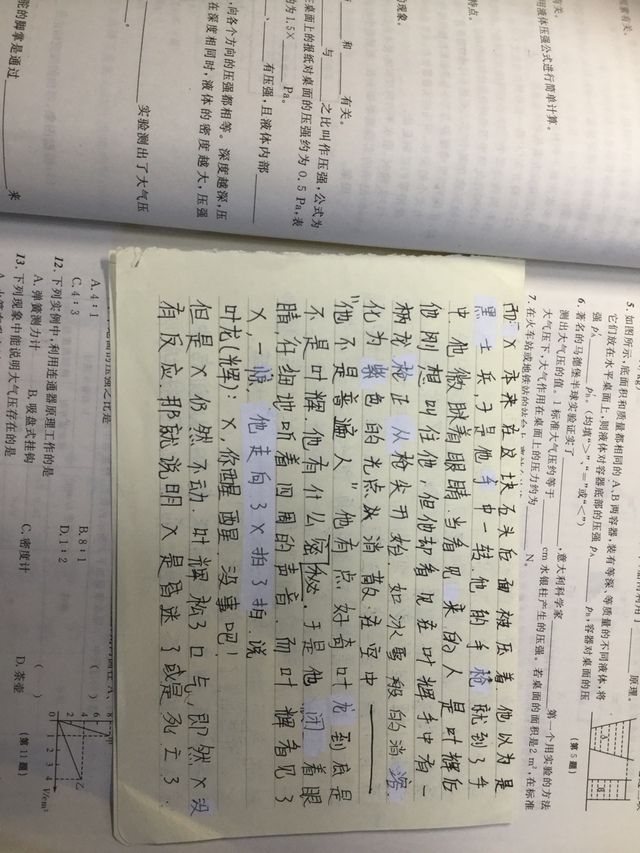 有关。
用液体压强公式进行简单计算。
特点。
的现象。
和 有关。
与 之比叫作压强,公式为
桌面上的报纸对桌面的压强约为0.5 Pa,表
为1.5× Pa。
有压强,且液体内部
向各个方向的压强都相等。深度越深,压
在深度相同时,液体的密度越大,压强
实验测出了大气压
驼的脚掌是通过 来
原理。
5. 如图所示,底面积和质量都相同的A、B两容器,装有等深、等质量的不同液体,将
它们放在水平桌面上,则液体对容器底部的压强pA pB,容器对桌面的压
强p′A p′B。(均填“>”“=”或“<”)
(第5题)
6. 著名的马德堡半球实验证实了 ,意大利科学家 第一个用实验的方法
测出大气压的值。1标准大气压约等于 cm水银柱产生的压强。若桌面的面积是2 m²,在标准
大气压下,大气作用在桌面上的压力约为 N。
7. 在火车站或地铁站的站台上
而X本来在这块石头后面被压着,他以为是
黑士兵,于是他手中一转,他的手枪就到了手
中,他微眯着眼睛,当看见来的人是叶辉后
他刚想叫住他,但他却看见在叶辉手中有一
柄龙枪正从枪尖开始,如冰雪般的消溶,
化为紫色的光点从消散在空中——
“他不是普遍人”他有点好奇叶龙到底是
不是叶辉,他有什么密秘,于是他闭着眼
睛,仔细地听着四周的声音,而叶辉看见了
X,一惊,他走向了X拍了拍,说
叶龙(辉):X,你醒醒,没事吧!
但是X仍然不动,叶辉松了口气,即然X没
有反应,那就说明X是昏迷了或是死亡了.
压强之比是
A. 4∶1 B. 8∶1
C. 4∶3 D. 1∶2
12. 下列实例中,利用连通器原理工作的是 ( )
A. 弹簧测力计 B. 吸盘式挂钩 C. 密度计 D. 茶壶
13. 下列现象中能说明大气压存在的是
(第11题)
V/cm³